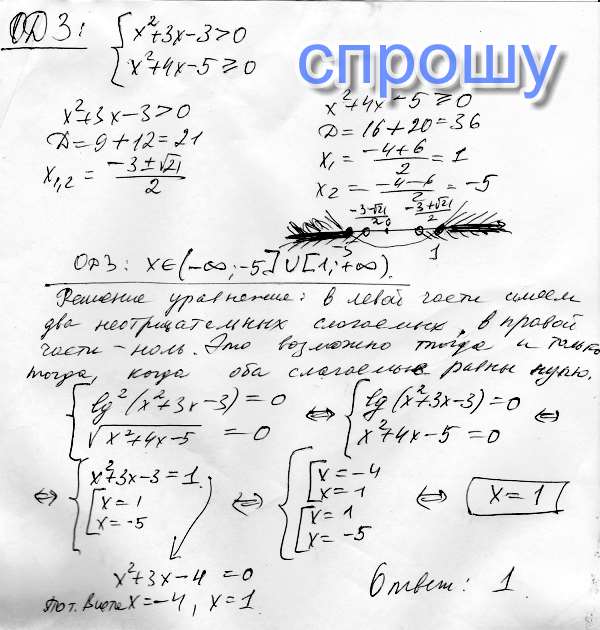 ОДЗ: { x²+3x-3>0
x²+4x-5≥0
спрошу
x²+3x-3>0
Д=9+12=21
x₁,₂ = (-3±√21)/2
x²+4x-5≥0
Д=16+20=36
x₁ = (-4+6)/2 = 1
x₂ = (-4-6)/2 = -5
(-3-√21)/2 0 (-3+√21)/2
-5 1
ОДЗ: x∈(-∞;-5]∪[1;+∞).
Решение уравнение: в левой части имеем
два неотрицательных слагаемых, в правой
части - ноль. Это возможно тогда и только
тогда, когда оба слагаемые равны нулю.
{ lg²(x²+3x-3)=0 ⇔ { lg(x²+3x-3)=0 ⇔
√(x²+4x-5) =0 x²+4x-5=0
⇔ { x²+3x-3=1 ⇔ { [ x=-4 ⇔ x=1
[ x=1 x=1
x=-5 [ x=1
x=-5
x²+3x-4=0
по т. Виета x=-4, x=1
Ответ: 1.